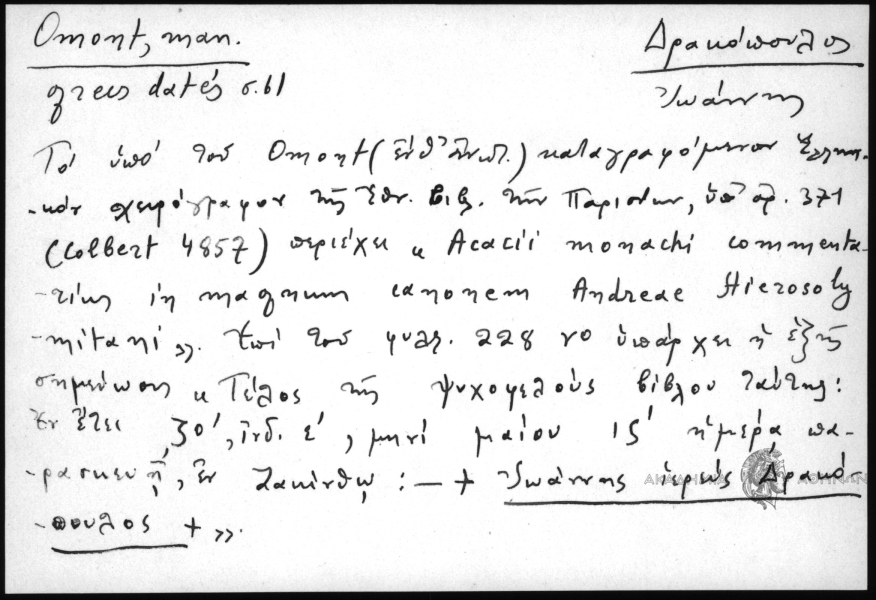 Omont, man. Δρακόπουλος
grecs datés σ. 61 Ἰωάννης
Τό ὑπό τοῦ Omont (ἔνθ' ἀνωτ.) καταγραφόμενον Ἑλλην-
-κόν χειρόγραφον τῆς Ἐθν. Βιβλ. τῶν Παρισίων, ὑπ' ἀρ. 371
(Colbert 4857) περιέχει « Acacii monachi commenta-
-rius in magnum canonem Andreae Hierosoly
-mitani ». Ἐπί τοῦ φυλλ. 228 vo ὑπάρχει ἡ ἑξῆς
σημείωσις « Τέλος τῆς ψυχοφελοῦς βίβλου ταύτης:
Ἐν ἔτει ζο', ἰνδ. ε', μηνί μαίου ις' ἡμέρᾳ πα-
-ρασκευῇ, ἐν Ζακίνθῳ : — + Ἰωάννης ἱερεύς Δρακό-
-πουλος + ».
ΑΚΑΔΗΜΙΑ ΑΘΗΝΩΝ